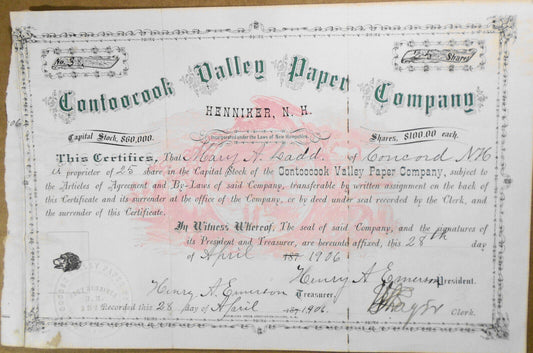 No. 38
25 Shares
Contoocook Valley Paper Company
HENNIKER, N. H.
Incorporated under the Laws of New Hampshire
Capital Stock, $60,000.
Shares, $100.00 each.
This Certifies, That Mary A. Ladd of Concord NH
A proprietor of 25 share in the Capital Stock of the Contoocook Valley Paper Company, subject to
the Articles of Agreement and By-Laws of said Company, transferable by written assignment on the back of
this Certificate and its surrender at the office of the Company, or by deed under seal recorded by the Clerk, and
the surrender of this Certificate.
In Witness Whereof, The seal of said Company, and the signatures of
its President and Treasurer, are hereunto affixed, this 28th day
of April 187 1906
Henry A. Emerson President.
Henry A. Emerson Treasurer.
Recorded this 28 day of April 187 1906.
Clerk.